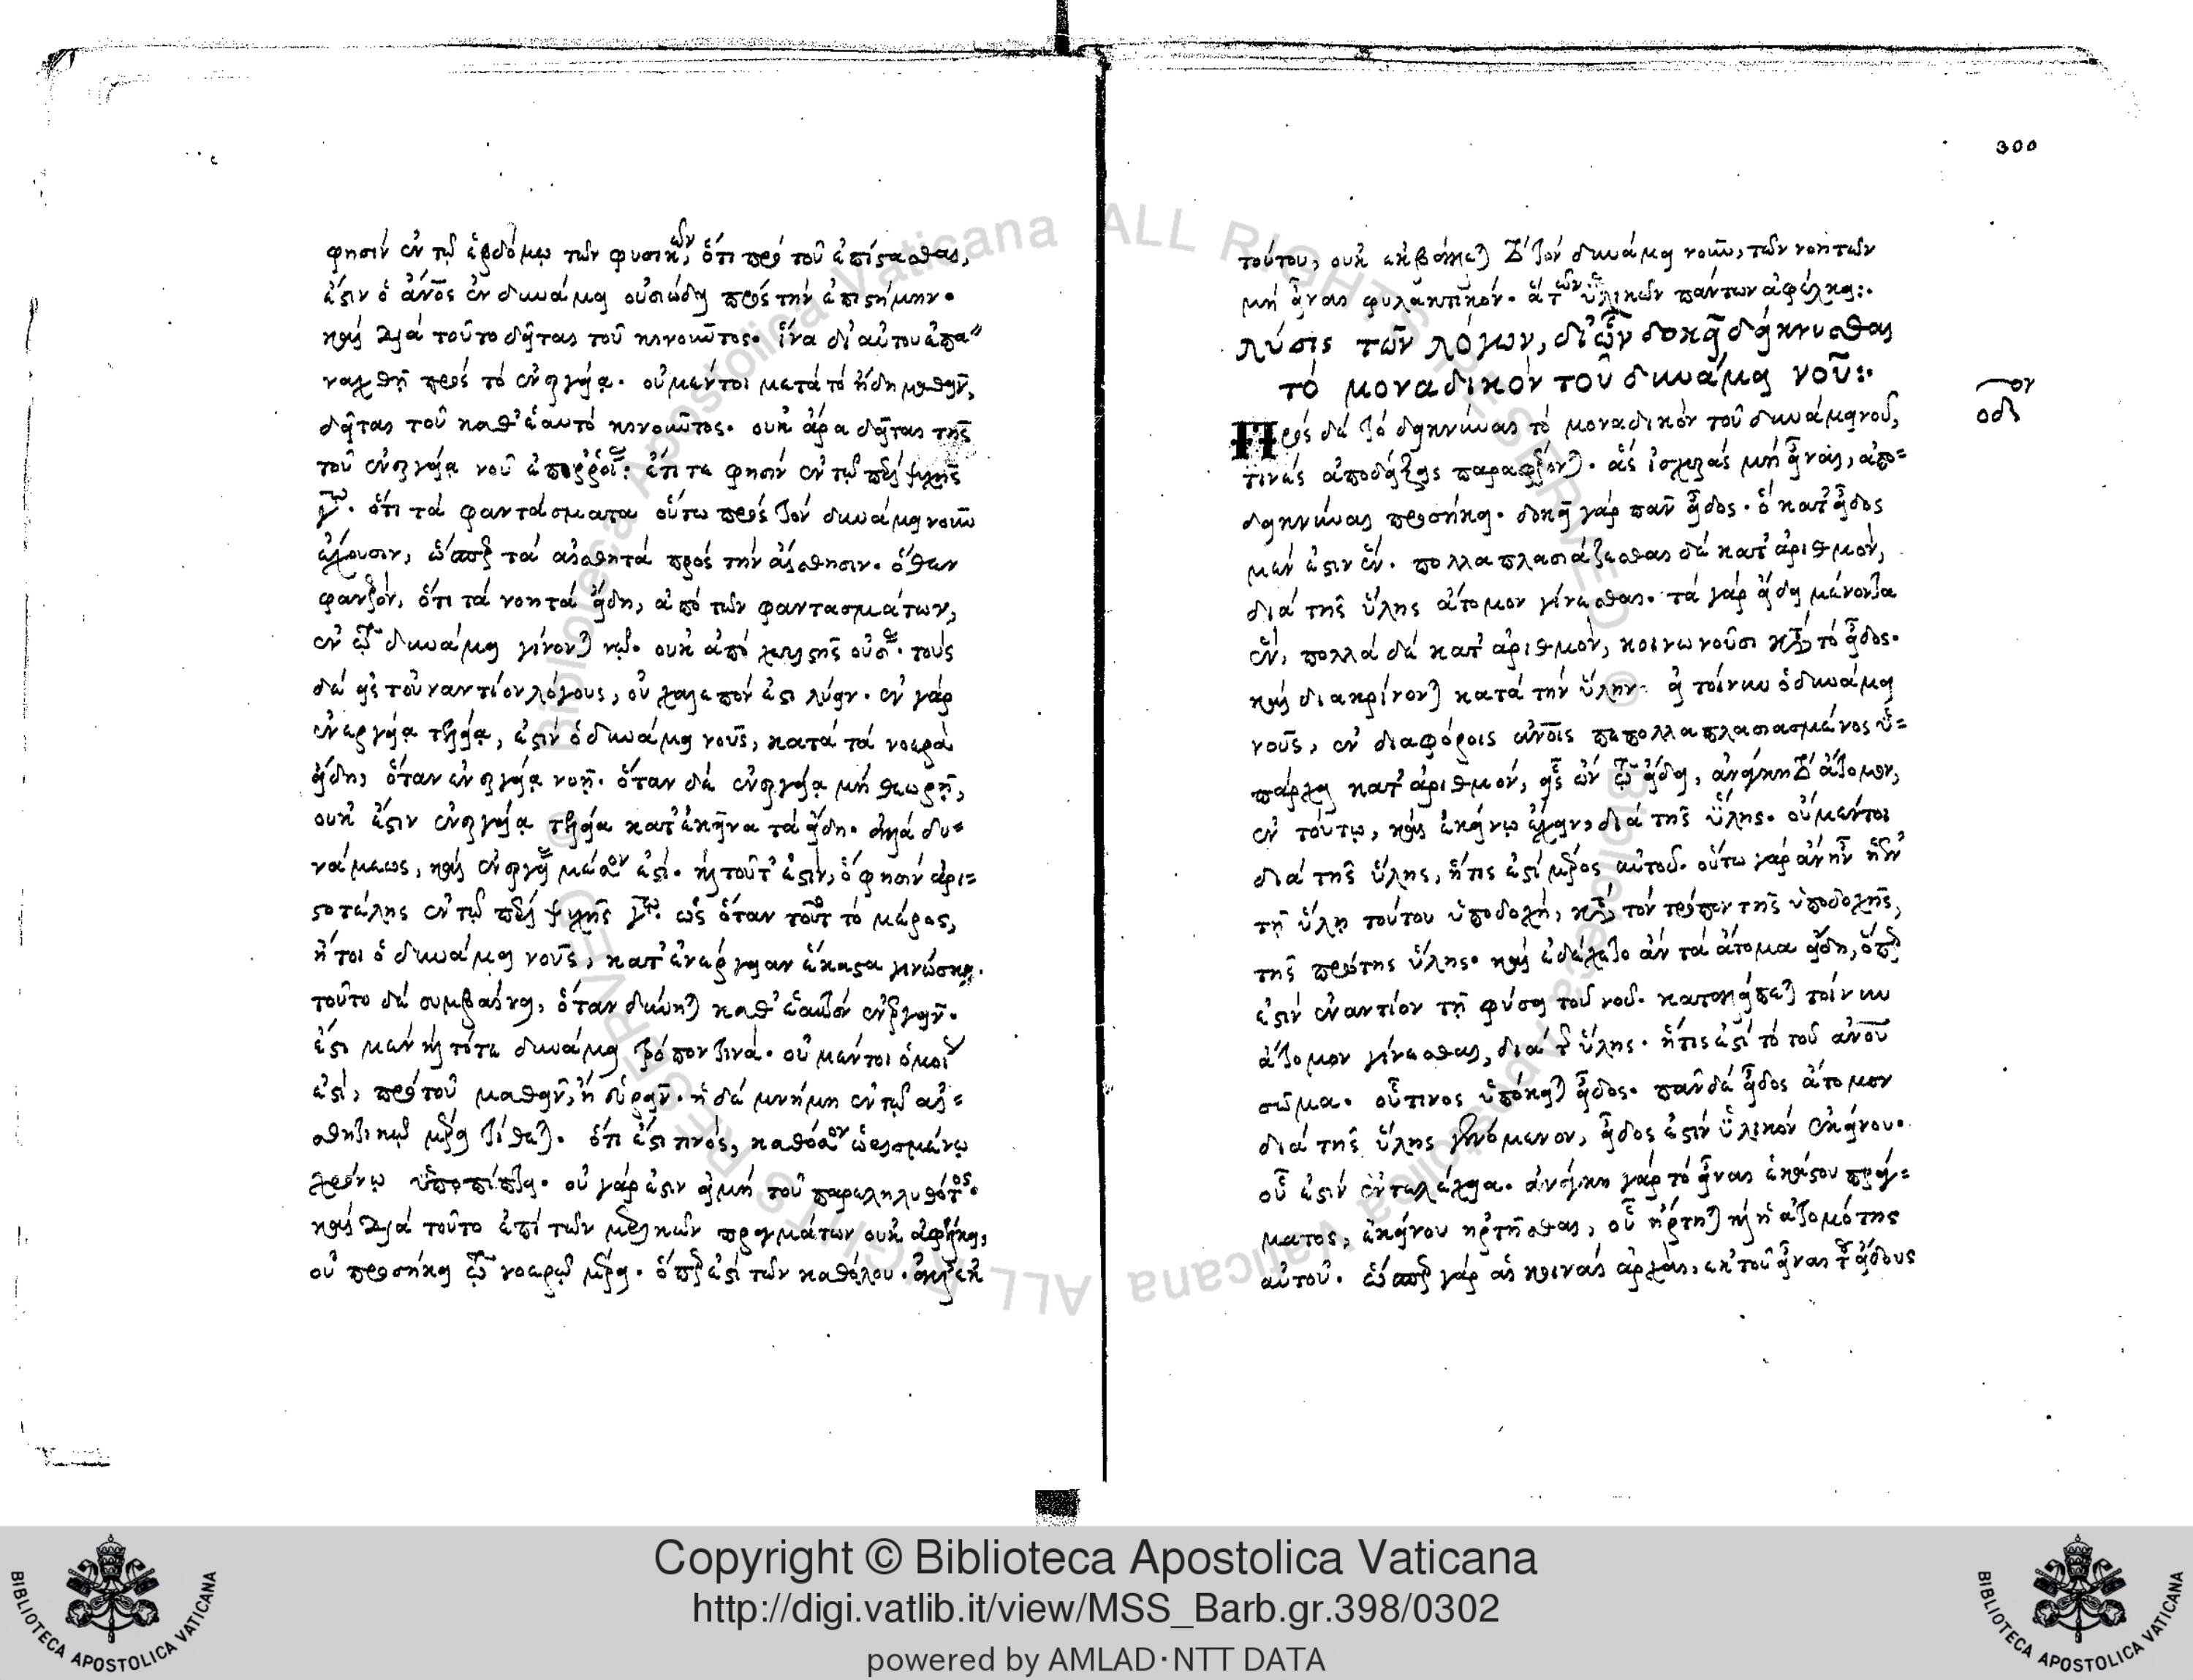 φησὶν ἐν τῷ ἑβδόμῳ τῶν φυσικῶν, ὅτι πρὸ τοῦ ἐπίστασθαι,
ἔστιν ὁ ἄνος ἐν δυνάμει οὐσιώδει πρὸς τὴν ἐπιστήμην.
καὶ διὰ τοῦτο δεῖται τοῦ κινοῦντος. ἵνα δι' αὐτοῦ ἐπα-
ναχθῇ πρὸς τὸ ἐνεργείᾳ. οὐ μέντοι μετὰ τὸ ἤδη μαθεῖν,
δεῖται τοῦ καθ' ἑαυτὸ κινοῦντος. οὐκ ἄρα δεῖται τῆς
τοῦ ἐνεργείᾳ νοῦ ἐπιρροίας: ἔτι τε φησὶν ἐν τῷ περὶ ψυχῆς
γω. ὅτι τὰ φαντάσματα οὕτω πρὸς τὸν δυνάμει νοῦν
ἔχουσιν, ὥσπερ τὰ αἰσθητὰ πρὸς τὴν αἴσθησιν. ὅθεν
φανερὸν, ὅτι τὰ νοητὰ εἴδη, ἀπὸ τῶν φαντασμάτων,
ἐν τῷ δυνάμει γίνονται νῷ. οὐκ ἀπὸ χωριστῆς οὐσίας. τοὺς
δὲ εἰς τοὐναντίον λόγους, οὐ χαλεπόν ἐστι λύειν. ἐν γὰρ
ἐνεργείᾳ τελείᾳ, ἐστὶν ὁ δυνάμει νοῦς, κατὰ τὰ νοερὰ
εἴδη, ὅταν ἐνεργείᾳ νοῇ. ὅταν δὲ ἐνεργείᾳ μὴ θεωρῇ,
οὐκ ἔστιν ἐνεργείᾳ τελείᾳ κατ' ἐκεῖνα τὰ εἴδη. ἀλλὰ δυ-
νάμεως, καὶ ἐνεργείας μέσον ἐστί. καὶ τοῦτ' ἐστὶν, ὅ φησιν ἀρι-
στοτέλης ἐν τῷ περὶ ψυχῆς γω. ὡς ὅταν τοῦτο τὸ μέρος,
ἤτοι ὁ δυνάμει νοῦς, κατ' ἐνέργειαν ἕκαστα γινώσκῃ.
τοῦτο δὲ συμβαίνει, ὅταν δύνηται καθ' ἑαυτὸν ἐνεργεῖν.
ἔστι μὲν καὶ τότε δυνάμει τρόπον τινά. οὐ μέντοι ὁμοίως
ἐστὶ, πρὸ τοῦ μαθεῖν, ἢ εὑρεῖν. ἡ δὲ μνήμη ἐν τῷ αἰ-
σθητικῷ μέρει τίθεται. ὅτι ἐστί τινος, καθόσον ὡρισμένῳ
χρόνῳ ὑποπίπτει. οὐ γάρ ἐστιν εἰ μὴ τοῦ παρεληλυθότος.
καὶ διὰ τοῦτο ἐπὶ τῶν μερικῶν πραγμάτων οὐκ ἀφέλκει,
οὐ προσήκει τῷ νοερῷ μέρει. ὅπερ ἐστὶ τῶν καθόλου. ἀλλ' ἐκ
300
τούτου, οὐκ ἐκβαίνεται τὸ τὸν δυνάμει νοῦν, τῶν νοητῶν
μὴ εἶναι φυλακτικόν. ἅτε τῶν ὑλικῶν πάντων ἀφέλκει:.
λύσις τῶν λόγων, δι' ὧν δοκεῖ δείκνυσθαι
τὸ μοναδικὸν τοῦ δυνάμει νοῦ:.
οδ
Πρὸς δὲ τὸ δεικνύναι τὸ μοναδικὸν τοῦ δυνάμει νοῦ,
τινὲς ἀποδείξεις παραφέρονται. ἃς ἰσχυρὰς μὴ εἶναι, ἀπο-
δεικνύναι προσήκει. δοκεῖ γὰρ πᾶν εἶδος. ὃ κατ' εἶδος
μέν ἐστιν ἕν. πολλαπλασιάζεσθαι δὲ κατ' ἀριθμὸν,
διὰ τῆς ὕλης ἄτομον γίνεσθαι. τὰ γὰρ εἴδει μένοντα
ἕν, πολλὰ δὲ κατ' ἀριθμὸν, κοινωνοῦσι κατὰ τὸ εἶδος.
καὶ διακρίνονται κατὰ τὴν ὕλην. εἰ τοίνυν ὁ δυνάμει
νοῦς, ἐν διαφόροις ἀνοις πεπολλαπλασιασμένος ὑ-
πάρχει κατ' ἀριθμὸν, εἷς ὢν τῷ εἴδει, ἀνάγκη τὸ ἄτομον,
ἐν τούτῳ, καὶ ἐκείνῳ ἔχειν, διὰ τῆς ὕλης. οὐ μέντοι
διὰ τῆς ὕλης, ἥτις ἐστὶ μέρος αὐτοῦ. οὕτω γὰρ ἂν ἦν
τῇ ὕλῃ τούτου ὑποδοχὴ, κατὰ τὸν τρόπον τῆς ὑποδοχῆς,
τῆς πρώτης ὕλης. καὶ ἐδέχετο ἂν τὰ ἄτομα εἴδη, ὅπερ
ἐστὶν ἐναντίον τῇ φύσει τοῦ νοῦ. καταλείπεται τοίνυν
ἄτομον γίνεσθαι, διὰ τῆς ὕλης. ἥτις ἐστὶ τὸ τοῦ ἀνου
σῶμα. οὗτινος ὑπόκειται εἶδος. πᾶν δὲ εἶδος ἄτομον
διὰ τῆς ὕλης γινόμενον, εἶδός ἐστιν ὑλικὸν ἐκείνου.
οὗ ἐστὶν ἐντελέχεια. ἀνάγκη γὰρ τὸ εἶναι ἑκάστου πράγ-
ματος, ἐκείνου ἠρτῆσθαι, οὗ ἤρτηται καὶ ἡ ἀτομότης
αὐτοῦ. ὥσπερ γὰρ αἱ κοιναὶ ἀρχαὶ, ἐκ τοῦ εἶναι τοῦ εἴδους
Copyright © Biblioteca Apostolica Vaticana
http://digi.vatlib.it/view/MSS_Barb.gr.398/0302
powered by AMLAD·NTT DATA
BIBLIOTECA APOSTOLICA VATICANA
BIBLIOTECA APOSTOLICA VATICANA